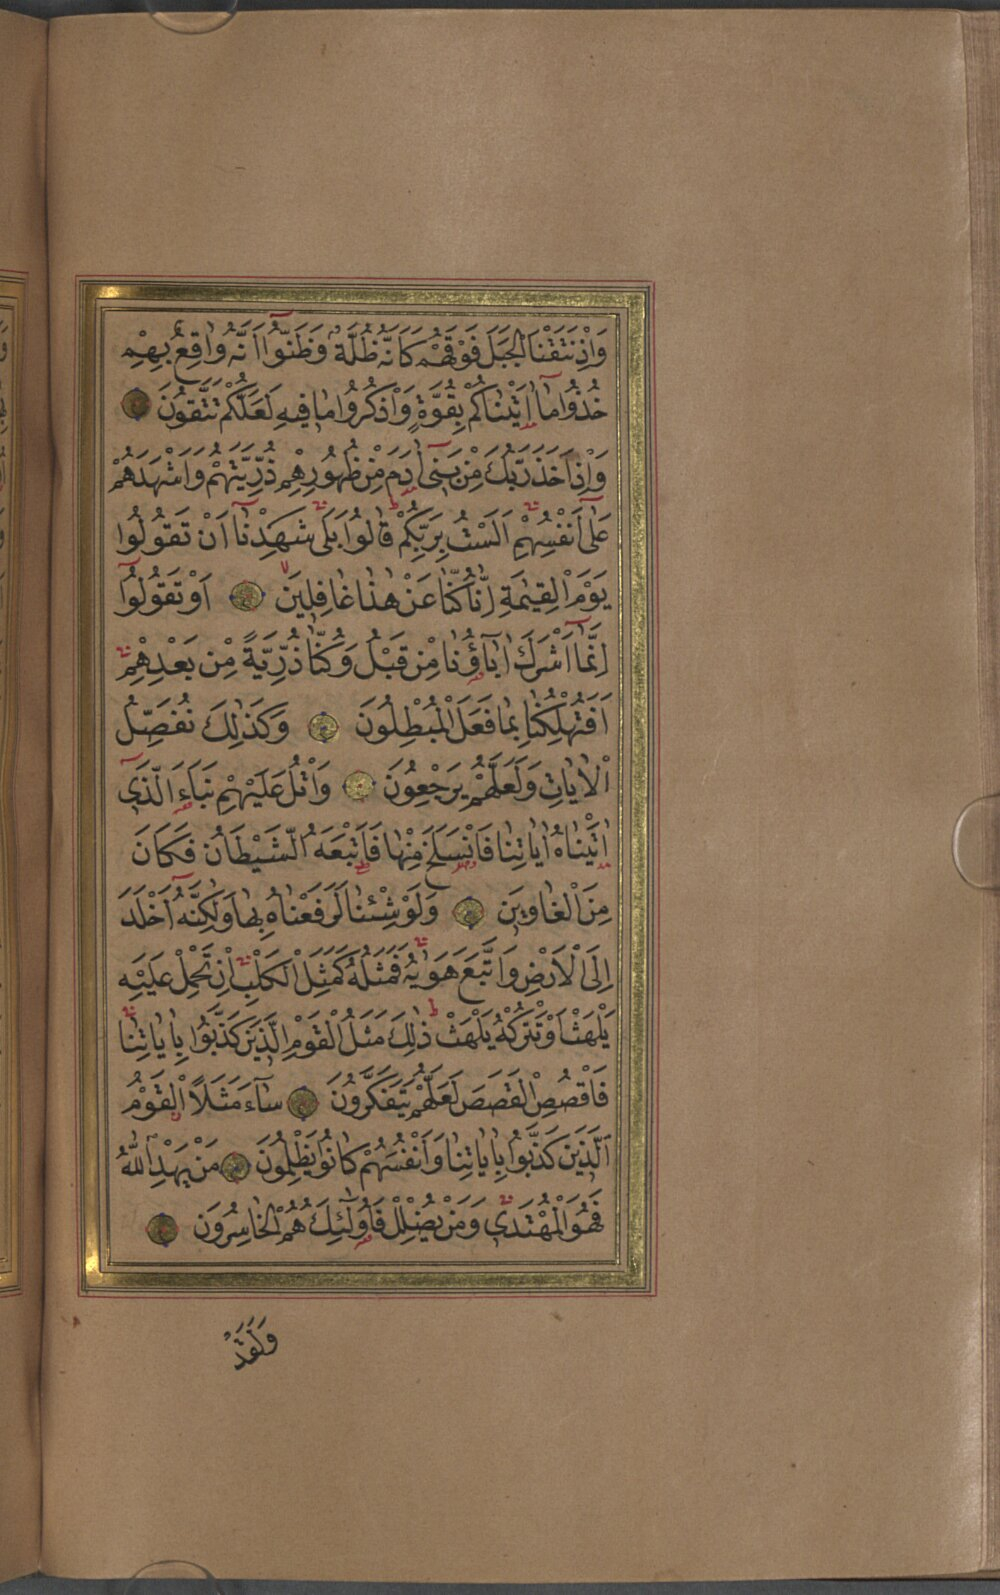 وَاِذْ نَتَقْنَا الْجَبَلَ فَوْقَهُمْ كَاَنَّهُ ظُلَّةٌ وَظَنُّٓوا اَنَّهُ وَاقِعٌ بِهِمْ
خُذُوا مَٓا اٰتَيْنَاكُمْ بِقُوَّةٍ وَاذْكُرُوا مَا فِيهِ لَعَلَّكُمْ تَتَّقُونَ
وَاِذْ اَخَذَ رَبُّكَ مِنْ بَنٖٓى اٰدَمَ مِنْ ظُهُورِهِمْ ذُرِّيَّتَهُمْ وَاَشْهَدَهُمْ
عَلٰٓى اَنْفُسِهِمْ اَلَسْتُ بِرَبِّكُمْ قَالُوا بَلٰى شَهِدْنَٓا اَنْ تَقُولُوا
يَوْمَ الْقِيٰمَةِ اِنَّا كُنَّا عَنْ هٰذَا غَافِلِينَ اَوْ تَقُولُٓوا
اِنَّمَٓا اَشْرَكَ اٰبَٓاؤُنَا مِنْ قَبْلُ وَكُنَّا ذُرِّيَّةً مِنْ بَعْدِهِمْ
اَفَتُهْلِكُنَا بِمَا فَعَلَ الْمُبْطِلُونَ وَكَذٰلِكَ نُفَصِّلُ
الْاٰيَاتِ وَلَعَلَّهُمْ يَرْجِعُونَ وَاتْلُ عَلَيْهِمْ نَبَاَ الَّذٖٓى
اٰتَيْنَاهُ اٰيَاتِنَا فَانْسَلَخَ مِنْهَا فَاَتْبَعَهُ الشَّيْطَانُ فَكَانَ
مِنَ الْغَاوِينَ وَلَوْ شِئْنَا لَرَفَعْنَاهُ بِهَا وَلٰكِنَّهُٓ اَخْلَدَ
اِلَى الْاَرْضِ وَاتَّبَعَ هَوٰيهُ فَمَثَلُهُ كَمَثَلِ الْكَلْبِ اِنْ تَحْمِلْ عَلَيْهِ
يَلْهَثْ اَوْ تَتْرُكْهُ يَلْهَثْ ذٰلِكَ مَثَلُ الْقَوْمِ الَّذِينَ كَذَّبُوا بِاٰيَاتِنَا
فَاقْصُصِ الْقَصَصَ لَعَلَّهُمْ يَتَفَكَّرُونَ سَٓاءَ مَثَلًا الْقَوْمُ
الَّذِينَ كَذَّبُوا بِاٰيَاتِنَا وَاَنْفُسَهُمْ كَانُوا يَظْلِمُونَ مَنْ يَهْدِ اللّٰهُ
فَهُوَ الْمُهْتَدِى وَمَنْ يُضْلِلْ فَاُولٰٓئِكَ هُمُ الْخَاسِرُونَ
وَلَقَدْ